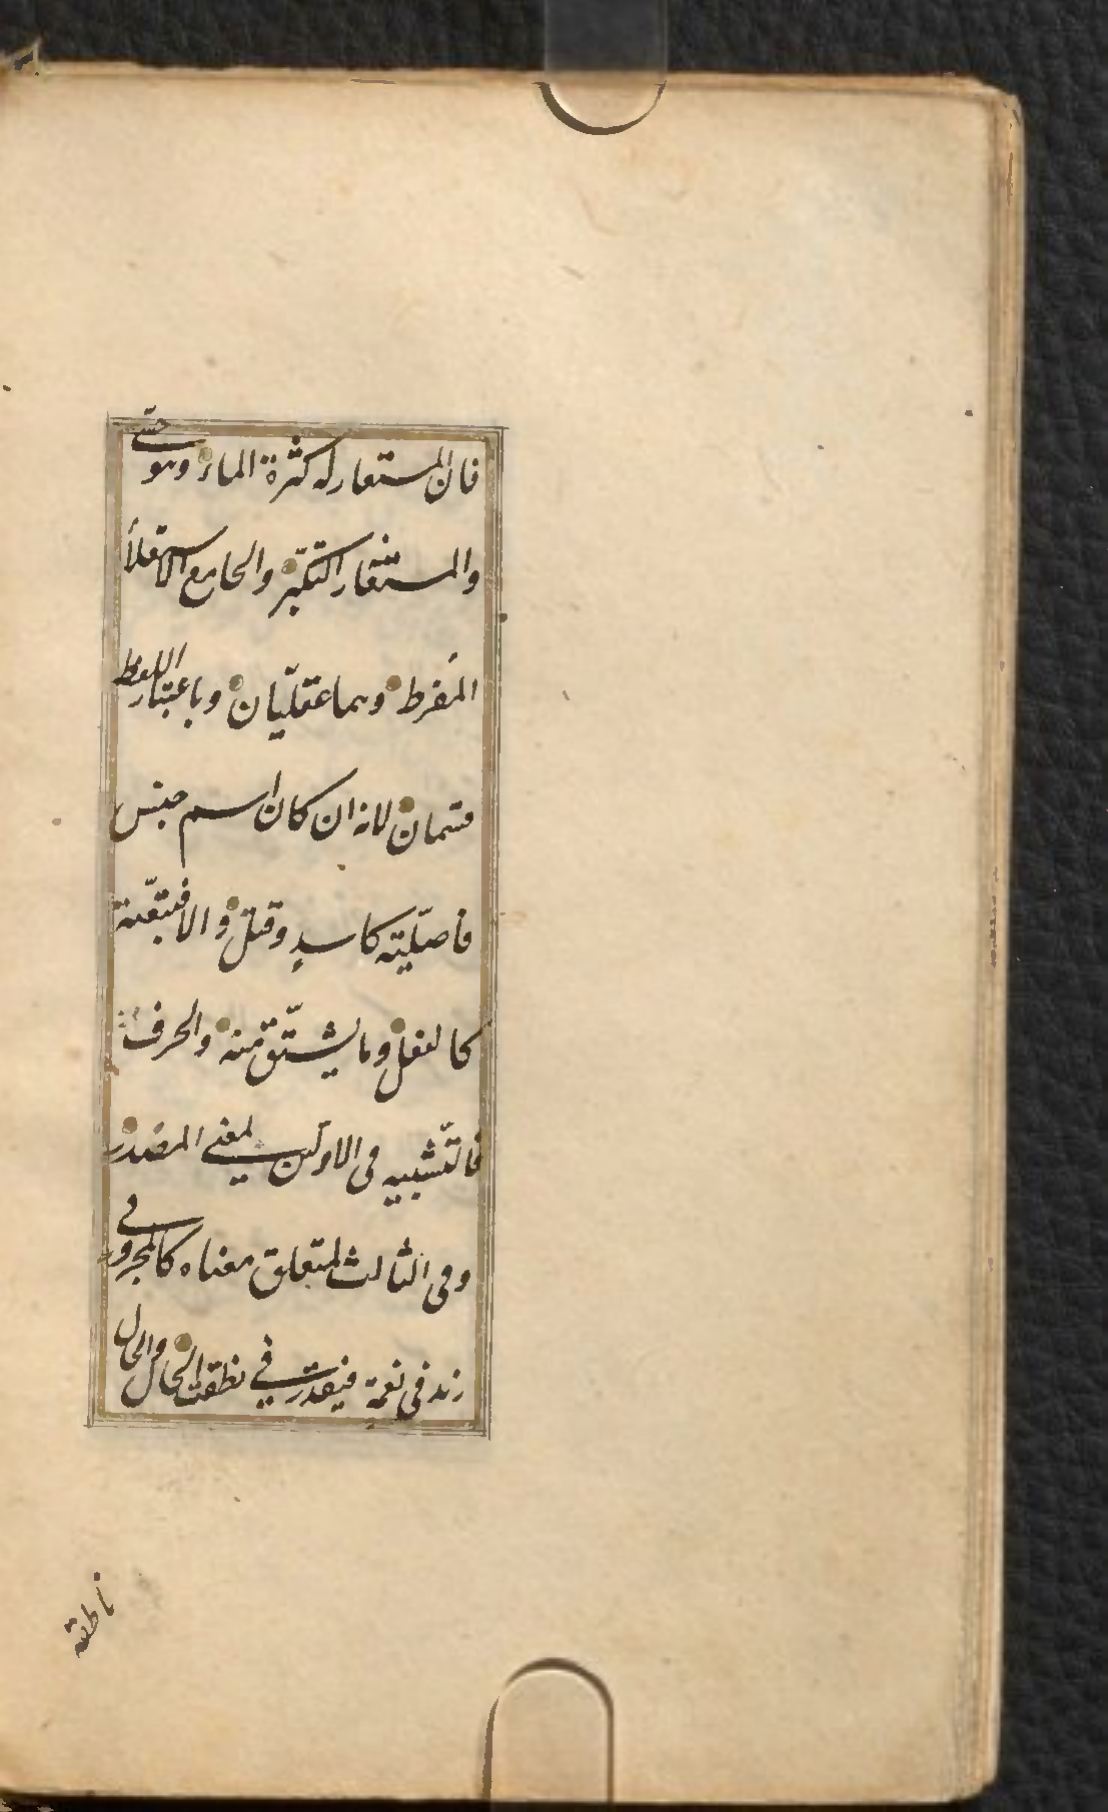 فان المستعار له كثرة الماء وهو حسّي
والمستعار التكبّر والجامع الاستعلاء
المفرط وهما عقليّان وباعتبار اللفظ
قسمان لانه ان كان اسم جنس
فاصليّته كاسدٍ وقتل والا فتبعيّة
كالفعل وما يشتقّ منه والحرف
فالتّشبيه فى الاولين لمعنى المصدر
وفى الثالث لمتعلق معناه كالمجرور فى
زيد فى نعمة فيقدر فى نطقت الحال والحال
ناطقه